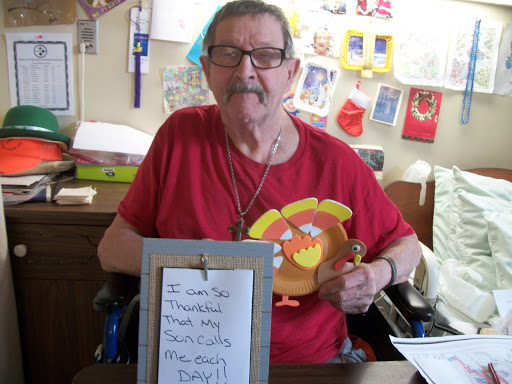 I am so
Thankful
That My
Son calls
Me each
DAY!!